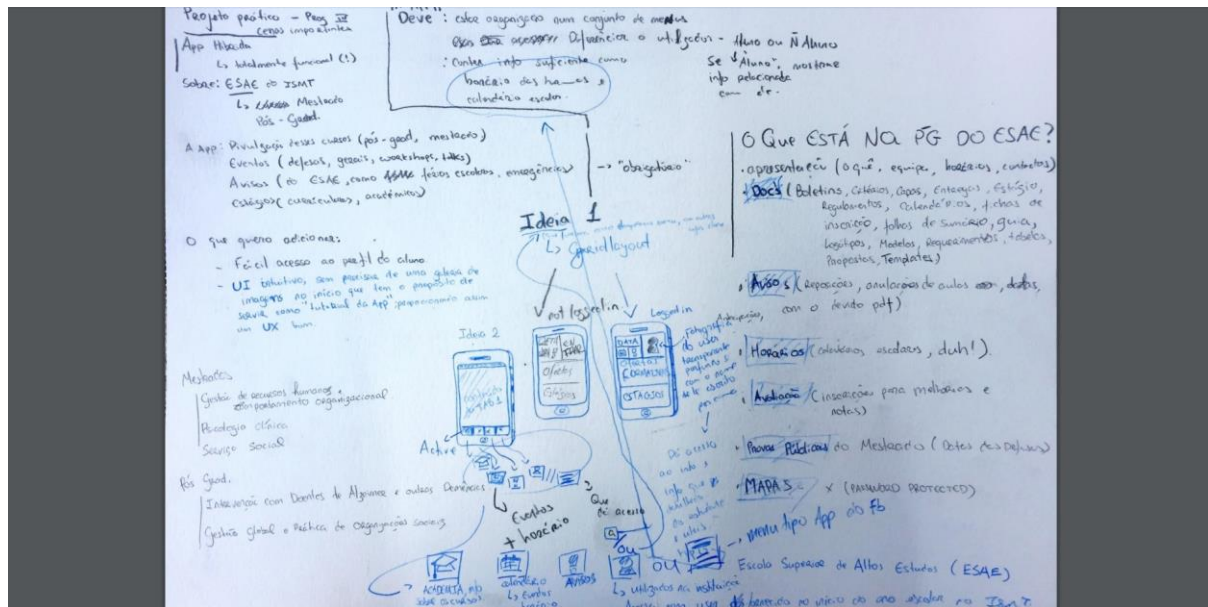 Projeto prático - Prog IV
cenas importantes
App Híbrida
↳ totalmente funcional (!)
Sobre: ESAE do ISMT
↳ Mestrado
Pós-Grad.
A App: Divulgação desses cursos (pós-grad, mestrado)
Eventos (defesas, gerais, workshops, talks)
Avisos (do ESAE, como férias escolares, emergências)
Estágios (curriculares, académicos)
O que quero adicionar:
- Fácil acesso ao perfil do aluno
- UI intuitivo, sem precisar de uma galeria de
imagens no início que tem o propósito de
servir como "tutorial da App", proporcionando assim
um UX bom
Mestrados
Gestão de recursos humanos e
comportamento organizacional
Psicologia clínica
Serviço Social
Pós Grad.
Intervenção com Doentes de Alzeimer e outras Demências
Gestão Global e Prática de Organizações sociais
Deve: estar organizado num conjunto de menus
Diferenciar o utilizador - Aluno ou Ñ Aluno
Se "Aluno", mostrar
info relacionada
com ele.
: conter info suficiente como
horário das e
calendário escolar.
→ "obrigatório"
Ideia 1
↳ Gridlayout
not logged in
Logged in
DATA
Ofertas
Estágios
DATA
Ofertas
ESTAGIOS
Fotografia
do user
transparente
com o nome
Ideia 2
TABS
Active
Eventos
+ horário
Que
dá acesso
Dá acesso
info que
ou
ou
→ menu tipo App do fb
ACADEMIA, info
sobre os cursos
calendário
↳ Eventos
AVISOS
O QUE ESTÁ NA PG DO ESAE?
• apresentação (o quê, equipa, horários, contactos)
• Docs (Boletins, Critérios, Capas, Entregas, Estágio,
Regulamentos, Calendários, fichas de
inscrição, folhas de Sumário, guia,
Logótipos, Modelos, Requerimentos, tabelas,
Propostas, Templates)
• Avisos (Reposições, anulações de aulas, datas,
com o devido pdf)
• Horários (calendários escolares, duh!).
• Avaliação (inscrições para melhorias e
notas)
• Provas Públicas do Mestrado (Datas das Defesas)
• MAPAS x (PASSWORD PROTECTED)
Escola Superior de Altos Estudos (ESAE)
no início do ano escolar no ISMT